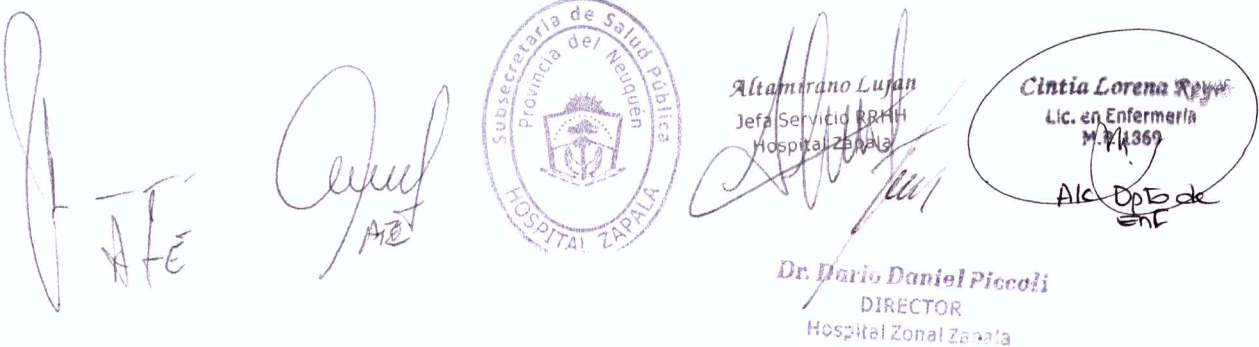 ATE
ATE
Subsecretaria de Salud Pública
Provincia del Neuquén
HOSPITAL ZAPALA
Altamirano Lujan
Jefa Servicio RRHH
Hospital Zapala
Cintia Lorena Reyes
Lic. en Enfermería
M.P. 1369
A/c Dpto de
Enf
Dr. Dario Daniel Piccoli
DIRECTOR
Hospital Zonal Zapala